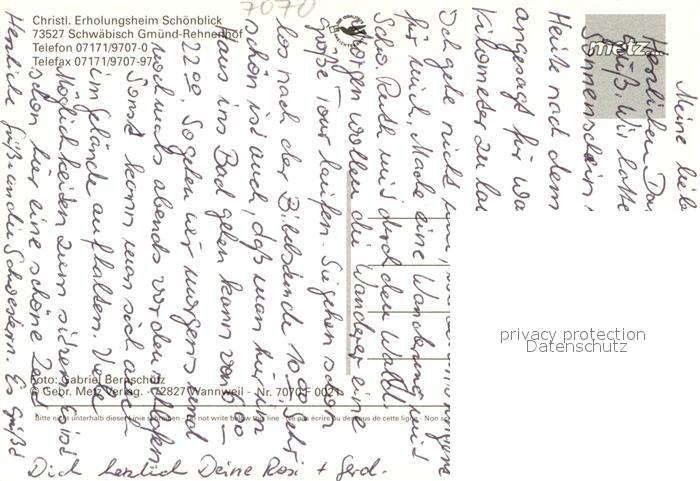 7070
Christl. Erholungsheim Schönblick
73527 Schwäbisch Gmünd-Rehnenhof
Telefon 07171/9707-0
Telefax 07171/9707-97
metz
Meine liebe
Herzlichen Dan
Gruß. Wir hatte
Sonnenschein
Heute nach dem
angesagt für wa
Kilometer zu lau
Ich gehe nicht
für mich. Mache eine Wanderung mit
Scho. Ruth und durch den Wald.
Morgen wollen die Wanderer eine
große Tour laufen. Sie gehen schon
los nach der Bibelstunde 10.30 Sehr
schön ist auch, daß man hier im
Haus ins Bad gehen kann von
22 00. So gehen wir morgens und
nochmals abends vor dem schlafen.
Sonst kann man sich auch
im Gelände aufhalten. Viele
Möglichkeiten zum sitzen. Es ist
schon hier eine schöne Zeit
Herzliche Grüße an die Schwestern. Es grüßt
Dich herzlich Deine Rosi + Gerd.
Foto: Gabriel Bernschütz
© Gebr. Metz Verlag - 72827 Wannweil - Nr. 7070 F 0021
Bitte nicht unterhalb dieser Linie schreiben - Do not write below this line - Ne pas écrire au-dessous de cette ligne - Non
privacy protection
Datenschutz